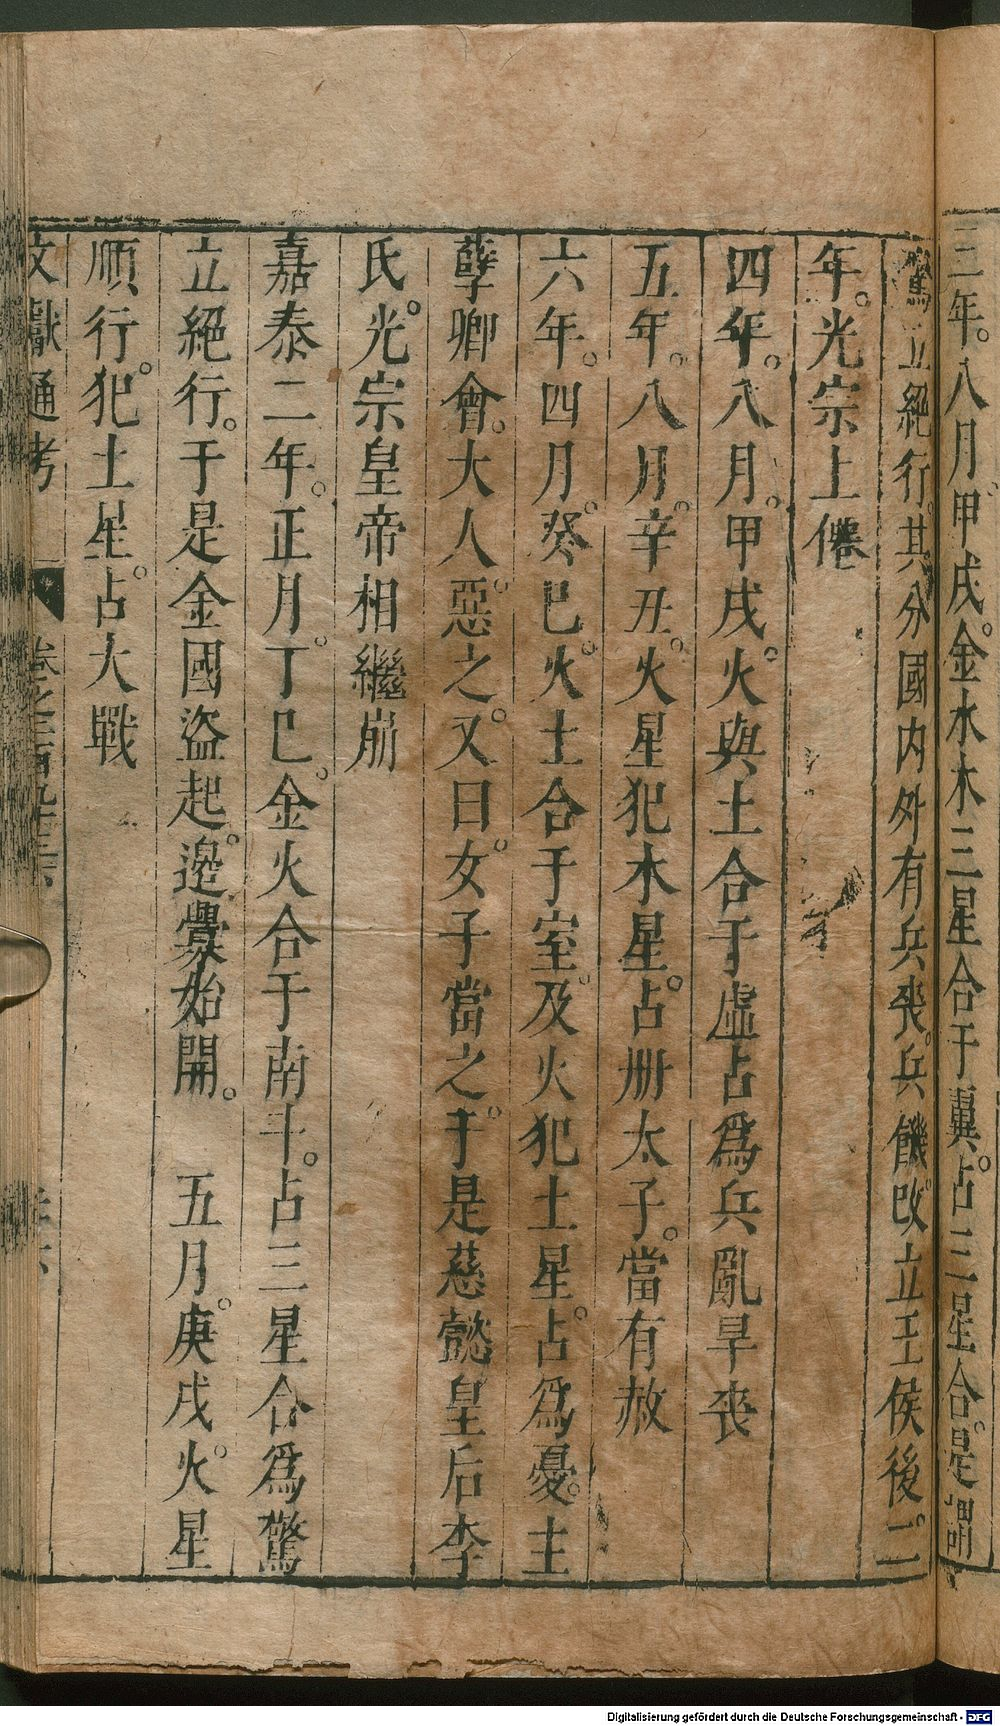 三年。八月。甲戌。金水木三星合于翼。占三星合。是謂
驚立絕行。其分國内外有兵喪。兵饑。改立王侯。後二
年。光宗上僊
四年。八月。甲戌。火與土合于虛占爲兵亂旱喪
五年。八月。辛丑。火星犯木星。占册太子。當有赦
六年。四月。癸巳。火土合于室。及火犯土星。占爲憂。主
孽卿會。大人惡之。又曰。女子當之。于是慈懿皇后李
氏。光宗皇帝相繼崩
嘉泰二年。正月。丁巳。金火合于南斗。占三星合爲驚
立絕行。于是金國盜起。邊釁始開。　五月。庚戌。火星
順行。犯土星。占大戰
文獻通考　卷之二百九十三
Digitalisierung gefördert durch die Deutsche Forschungsgemeinschaft - DFG